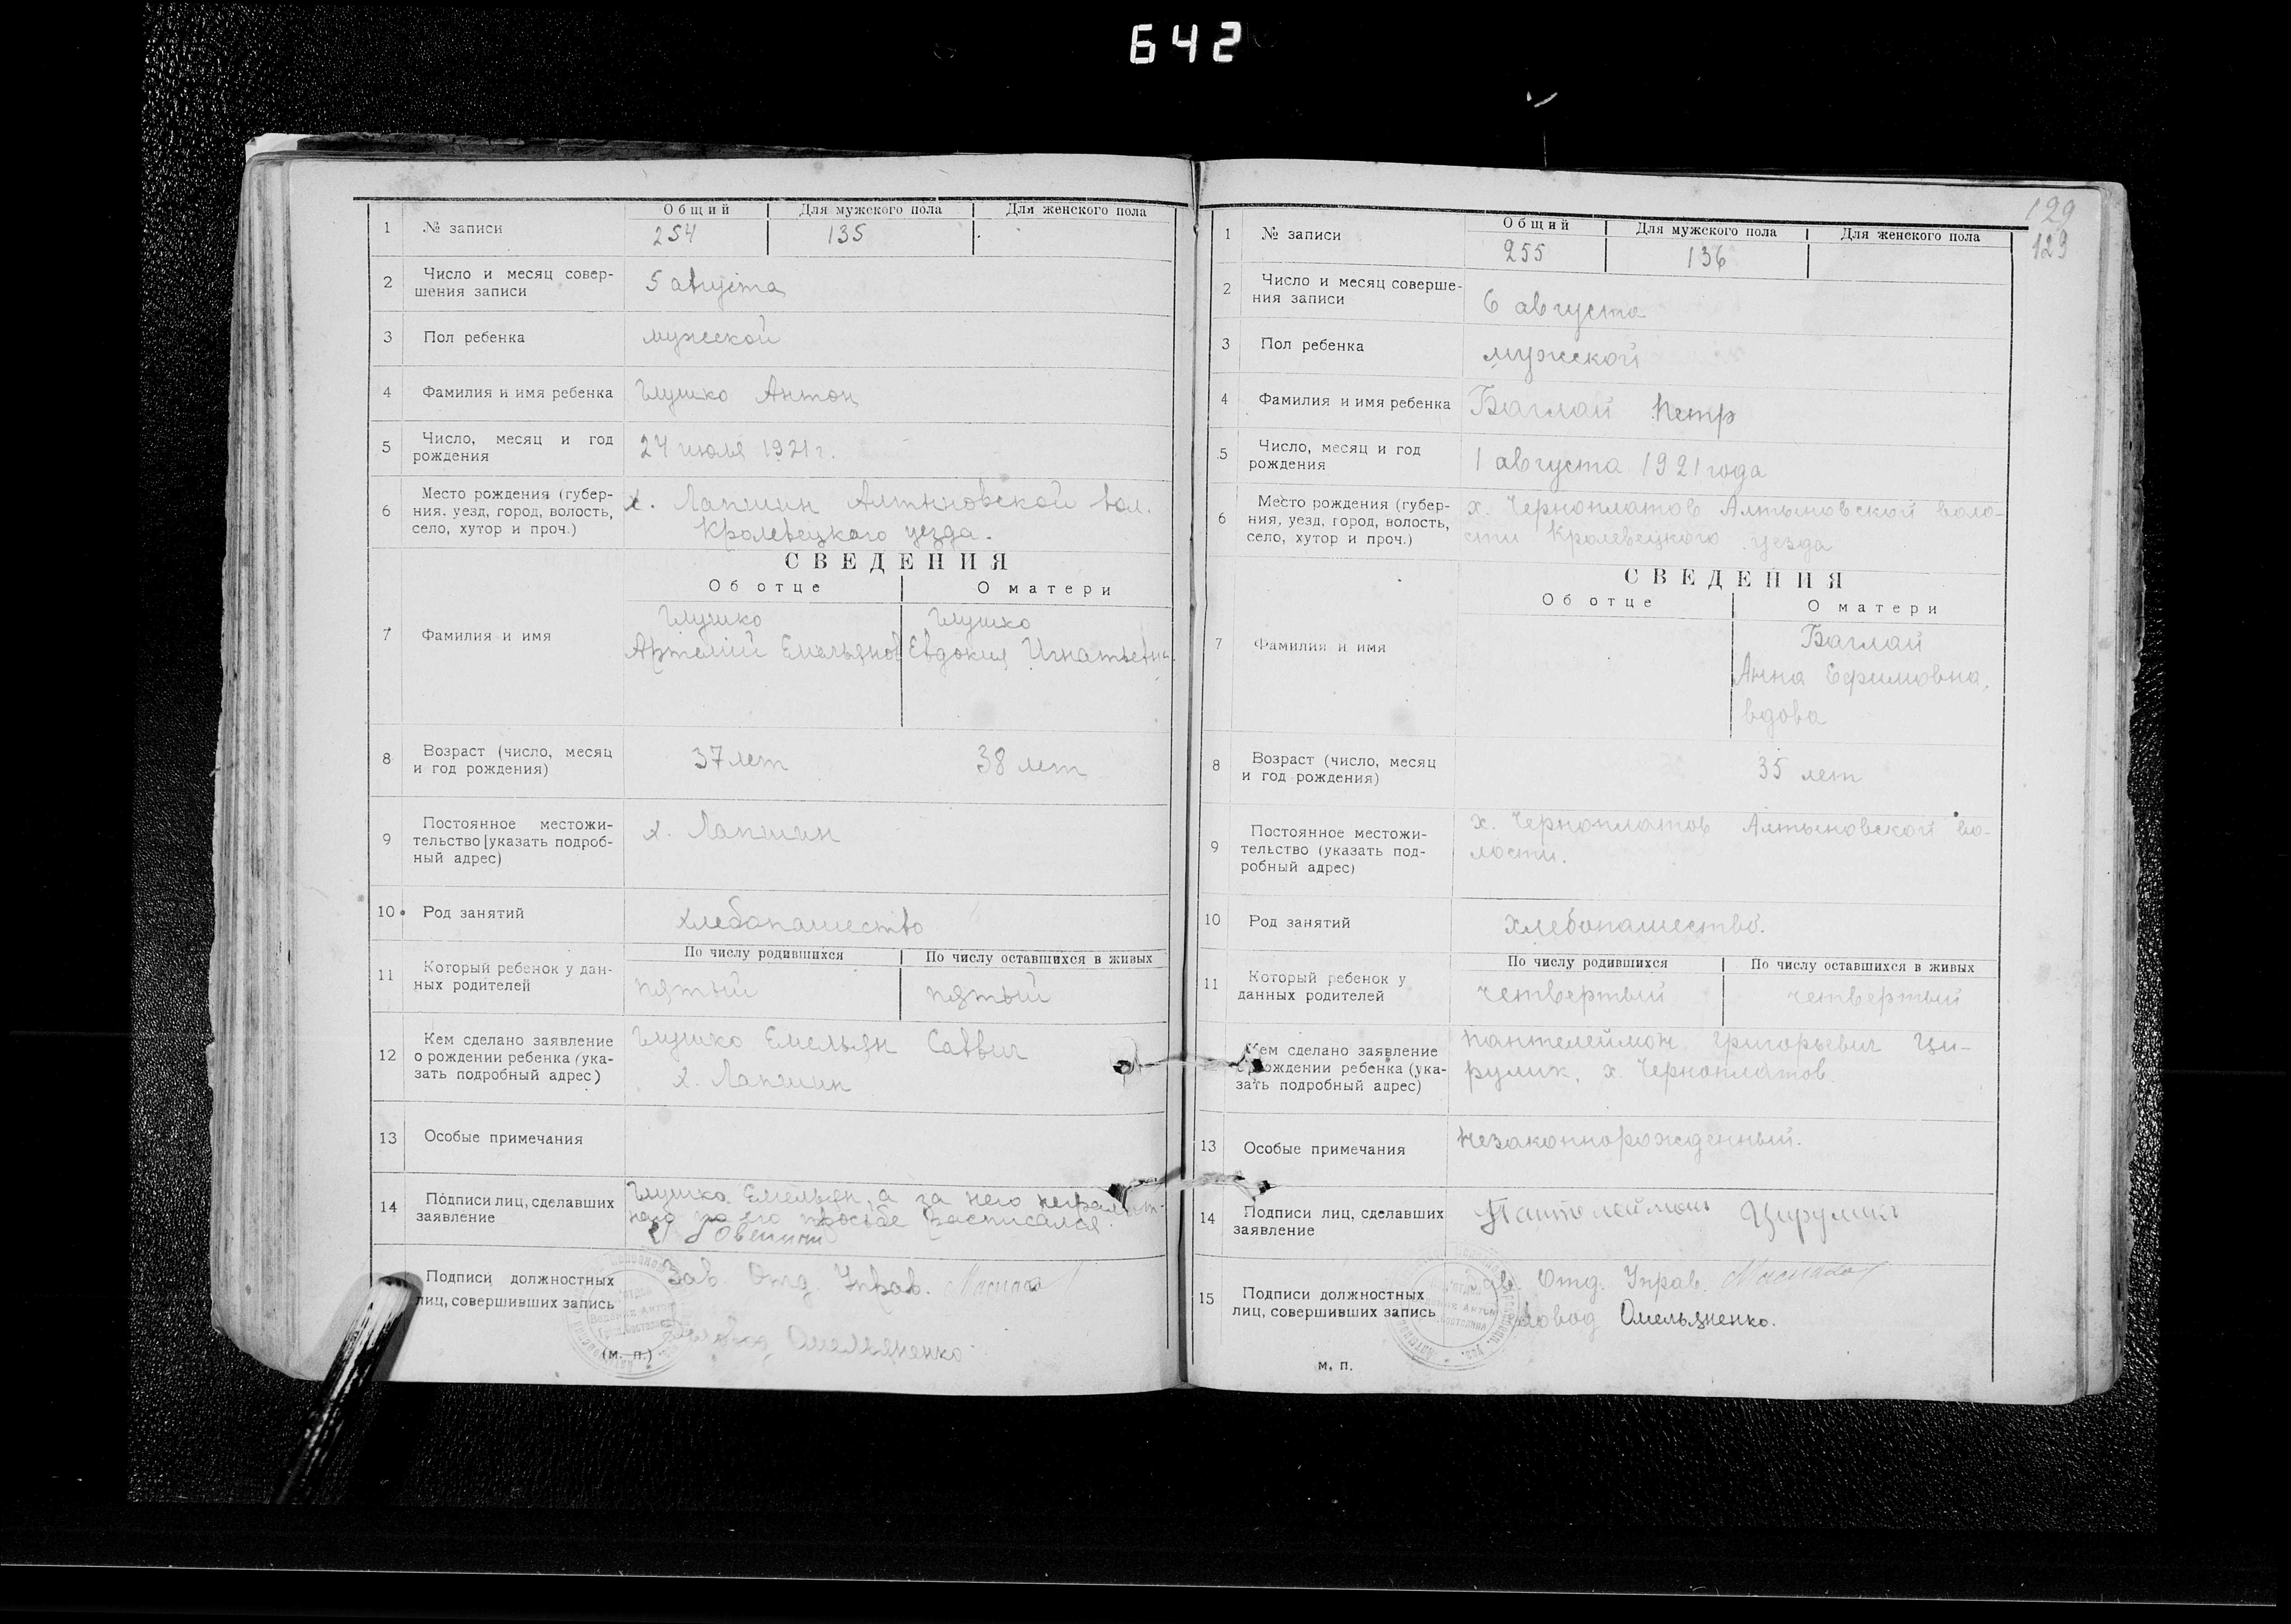 642
1 № записи
Общий Для мужского пола Для женского пола
254 135
2 Число и месяц совер-
шения записи
5 августа
3 Пол ребенка мужской
4 Фамилия и имя ребенка Глушко Антон
5 Число, месяц и год
рождения
24 июля 1921 г.
6 Место рождения (губер-
ния, уезд, город, волость,
село, хутор и проч.)
х. Лапшин Алтыновской вол.
Кролевецкого уезда.
СВЕДЕНИЯ
Об отце О матери
7 Фамилия и имя
Глушко Глушко
Артемий Емельянов Евдокия Игнатьевна
8 Возраст (число, месяц
и год рождения)
37 лет 38 лет
9 Постоянное местожи-
тельство [указать подроб-
ный адрес)
х. Лапшин
10 Род занятий хлебопашество
11 Который ребенок у дан-
ных родителей
По числу родившихся По числу оставшихся в живых
пятый пятый
12 Кем сделано заявление
о рождении ребенка (ука-
зать подробный адрес)
Глушко Емельян Саввич
х. Лапшин
13 Особые примечания
14 Подписи лиц, сделавших
заявление
Глушко Емельян, а за него неграмот-
ного по его просьбе расписался
Подписи должностных
лиц, совершивших запись
Зав. Отд. Управ.
Омельяненко
(м. п.)
129
129
1 № записи
Общий Для мужского пола Для женского пола
255 136
2 Число и месяц соверше-
ния записи
6 августа
3 Пол ребенка мужской
4 Фамилия и имя ребенка Баглай Петр
5 Число, месяц и год
рождения
1 августа 1921 года
6 Место рождения (губер-
ния, уезд, город, волость,
село, хутор и проч.)
х. Черноплатов Алтыновской воло-
сти Кролевецкого уезда
СВЕДЕНИЯ
Об отце О матери
7 Фамилия и имя
Баглай
Анна Ефимовна,
вдова
8 Возраст (число, месяц
и год рождения)
35 лет
9 Постоянное местожи-
тельство (указать под-
робный адрес)
х. Черноплатов Алтыновской во-
лости.
10 Род занятий хлебопашество.
11 Который ребенок у
данных родителей
По числу родившихся По числу оставшихся в живых
четвертый четвертый
Кем сделано заявление
о рождении ребенка (ука-
зать подробный адрес)
Пантелеймон Григорьевич Ци-
рулик, х. Черноплатов
13 Особые примечания Незаконнорожденный.
14 Подписи лиц, сделавших
заявление
Пантелеймон Цирулик
15 Подписи должностных
лиц, совершивших запись
Отд. Управ.
Омельяненко.
м. п.